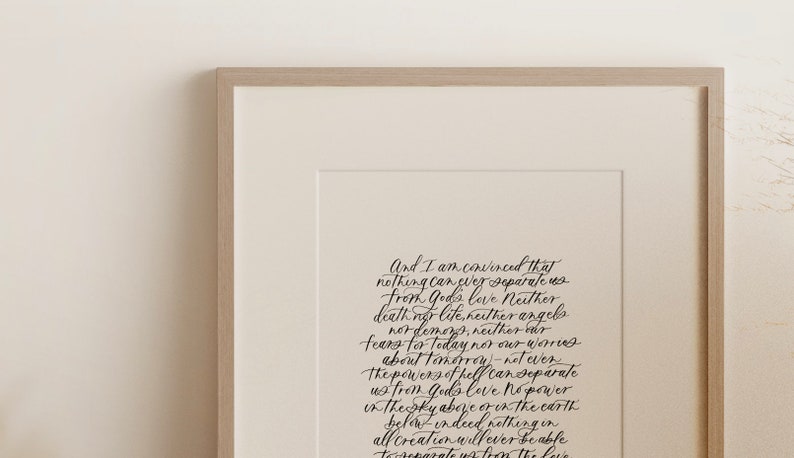 And I am convinced that
nothing can ever separate us
from God's love Neither
death nor life, neither angels
nor demons, neither our
fears for today nor our worries
about tomorrow - not even
the powers of hell can separate
us from God's love. No power
in the sky above or in the earth
below - indeed nothing in
all creation will ever be able
to separate us from the love